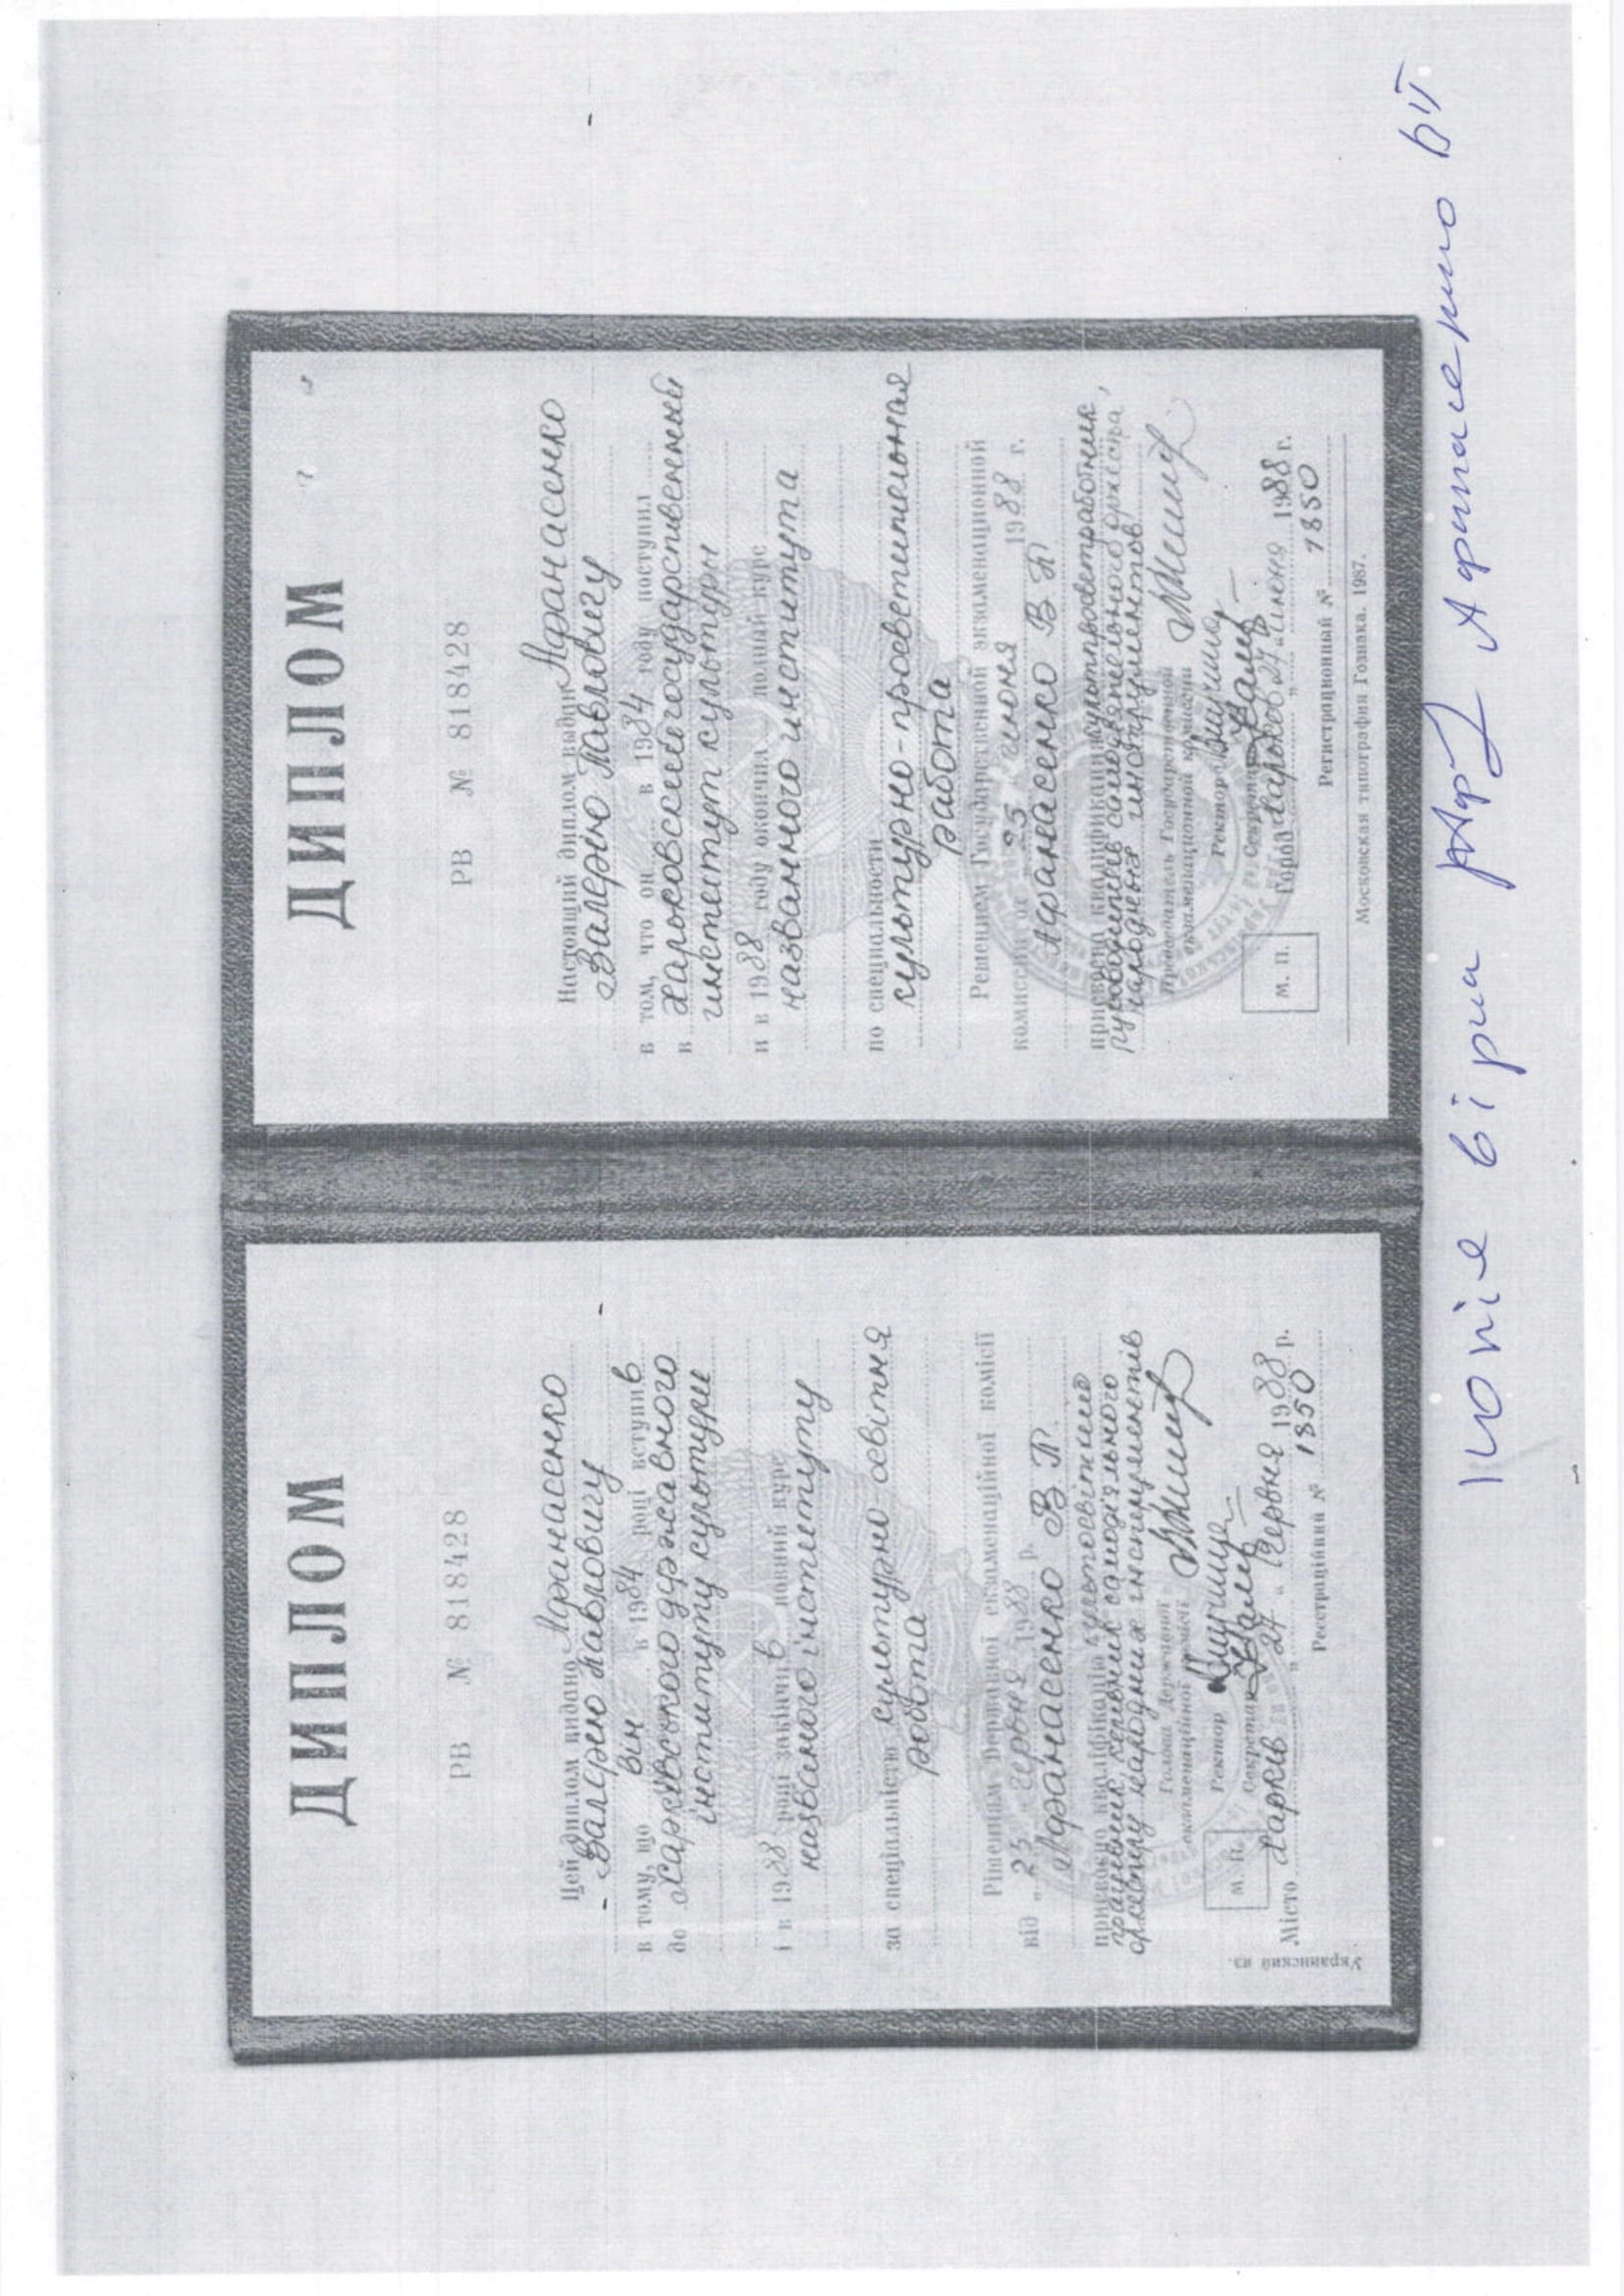 ДИПЛОМ
РВ № 818428
Цей диплом видано Афанасенко
Валерію Павловичу
в тому, що він в 1984 році вступив
до Харківського державного
інституту культури
і в 1988 році закінчив повний курс
названого інституту
за спеціальністю культурно-освітня
робота
Рішенням Державної екзаменаційної комісії
від „25 червня 1988 р.
Афанасенко В. П.
присвоєно кваліфікацію культосвітній
працівник, керівник самодіяльного
оркестру народних інструментів
Голова Державної
екзаменаційної комісії
Ректор
Секретар
М. П.
Місто Харків „27 " червня 1988 р.
Реєстраційний № 1850
Украинский яз.
ДИПЛОМ
РВ № 818428
Настоящий диплом выдан Афанасенко
Валерию Павловичу
в том, что он в 1984 году поступил
в Харьковский государственный
институт культуры
и в 1988 году окончил полный курс
названного института
по специальности
культурно-просветительная
работа
Решением Государственной экзаменационной
комиссии от 25 июня 1988 г.
Афанасенко В. П.
присвоена квалификация культпросветработник
руководитель самодеятельного оркестра
народных инструментов
Председатель Государственной
экзаменационной комиссии
Ректор
Секретарь
М. П.
Город Харьков „27 " июня 1988 г.
Регистрационный № 1850
Московская типография Гознака. 1987.
копія вірна Афанасенко ВП